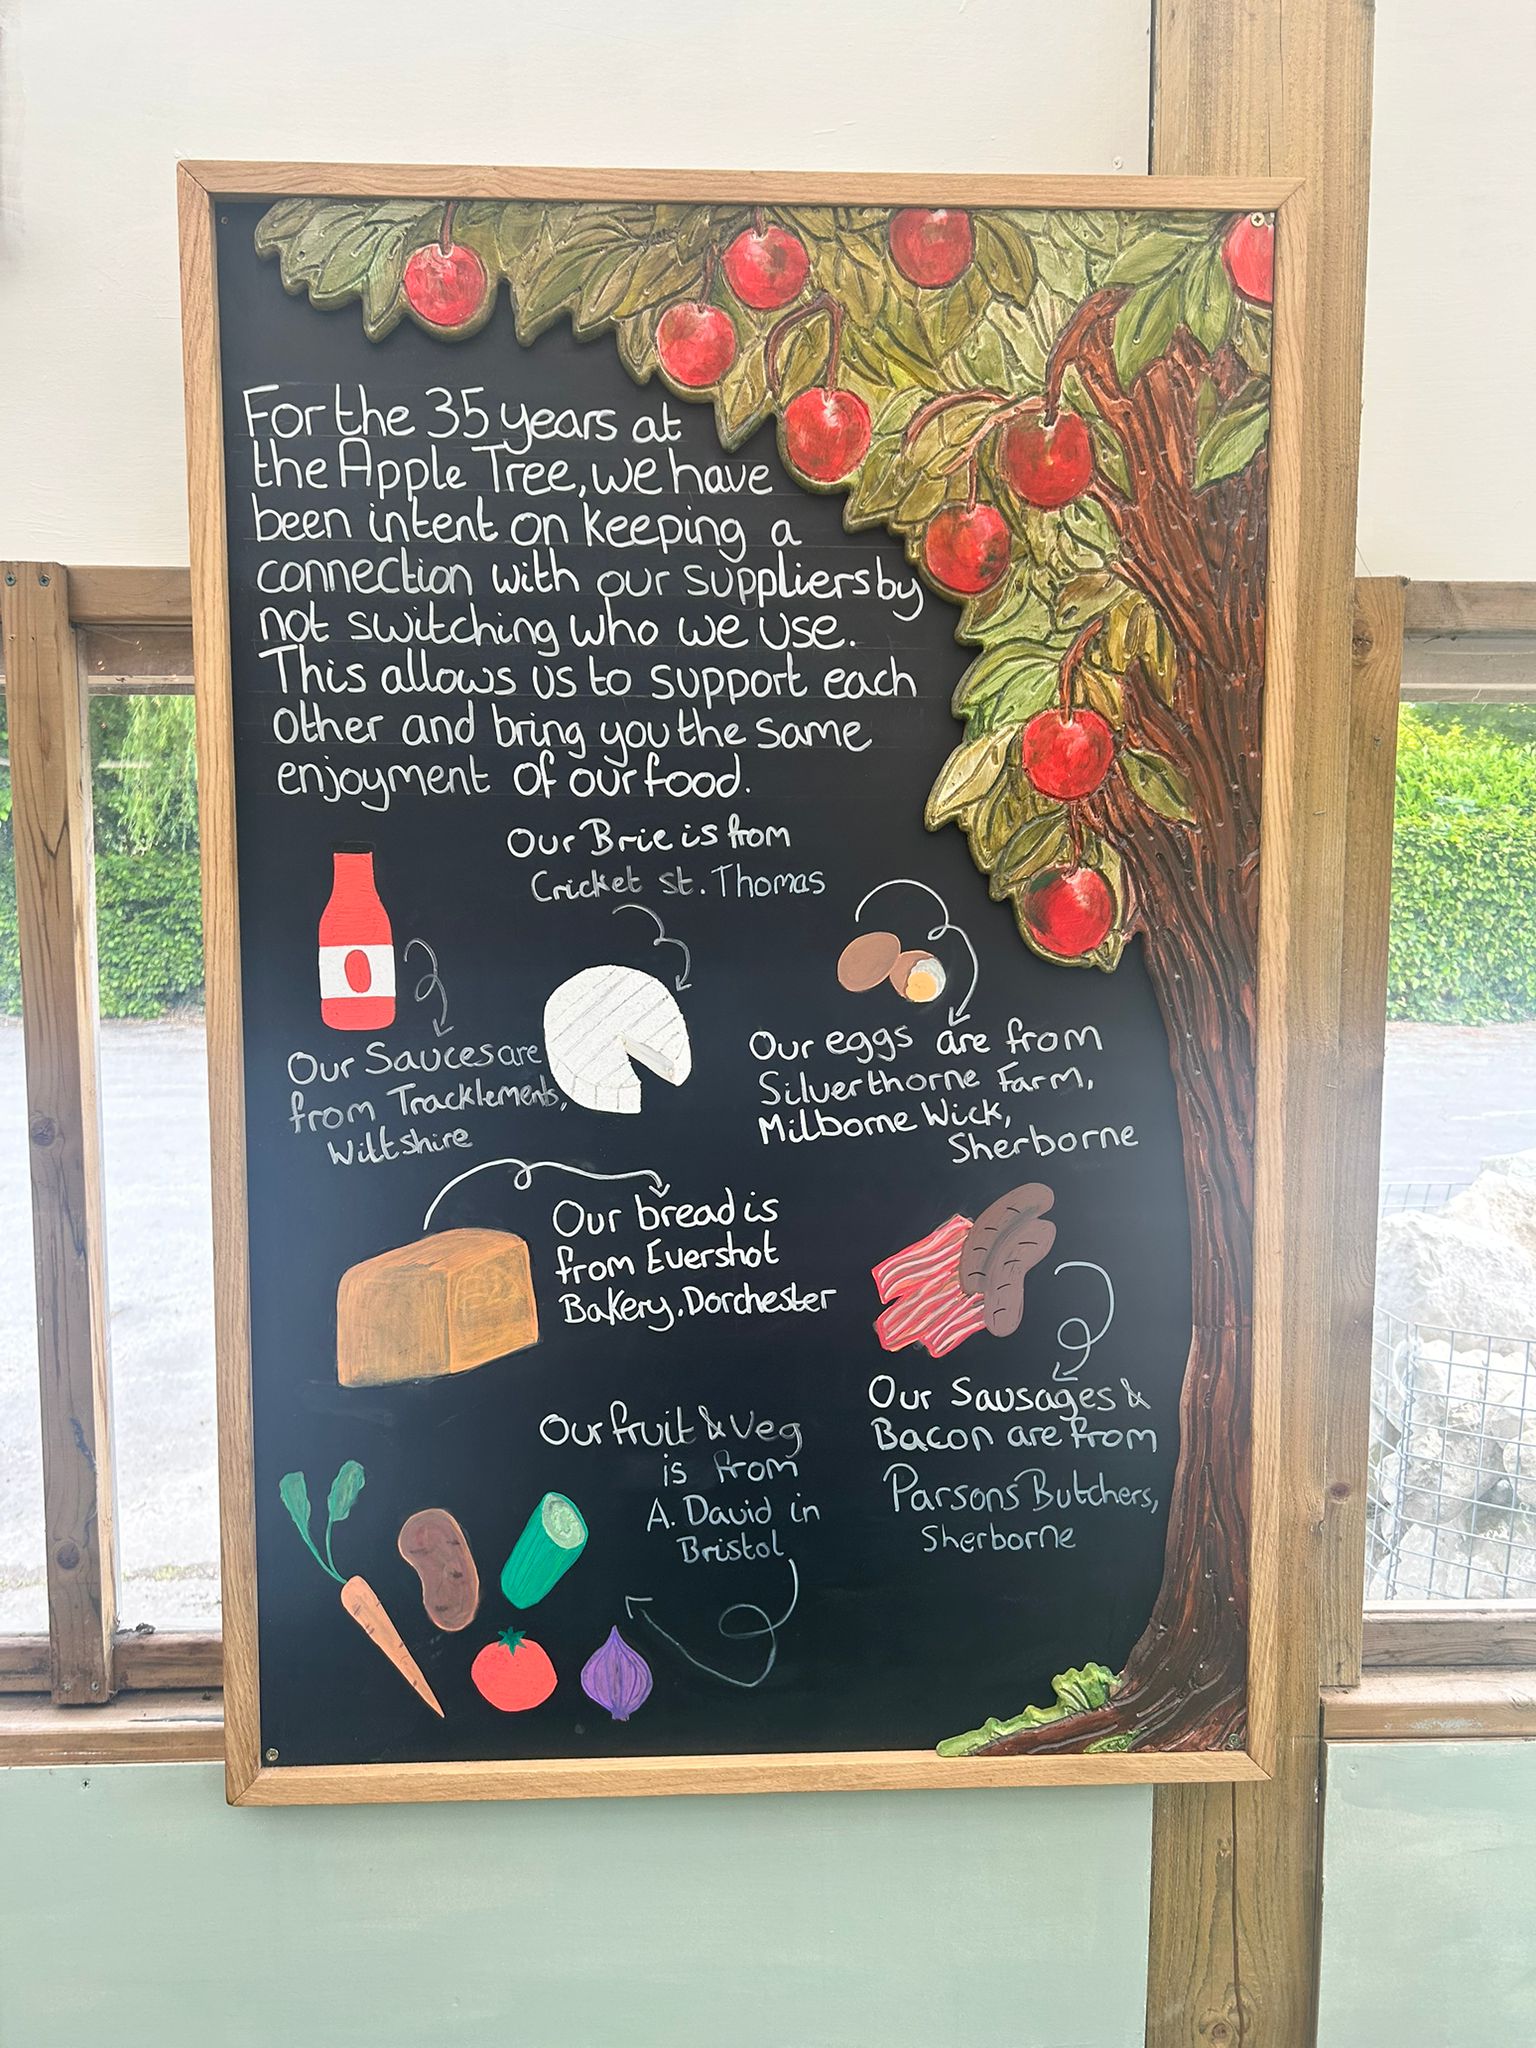 For the 35 years at
the Apple Tree, we have
been intent on keeping a
connection with our suppliers by
not switching who we use.
This allows us to support each
other and bring you the same
enjoyment of our food.
Our Brie is from
Cricket St. Thomas
Our Sauces are
from Tracklements,
Wiltshire
Our eggs are from
Silverthorne Farm,
Milborne Wick,
Sherborne
Our bread is
from Evershot
Bakery. Dorchester
Our Sausages &
Bacon are from
Parsons Butchers,
Sherborne
Our fruit & Veg
is from
A. David in
Bristol